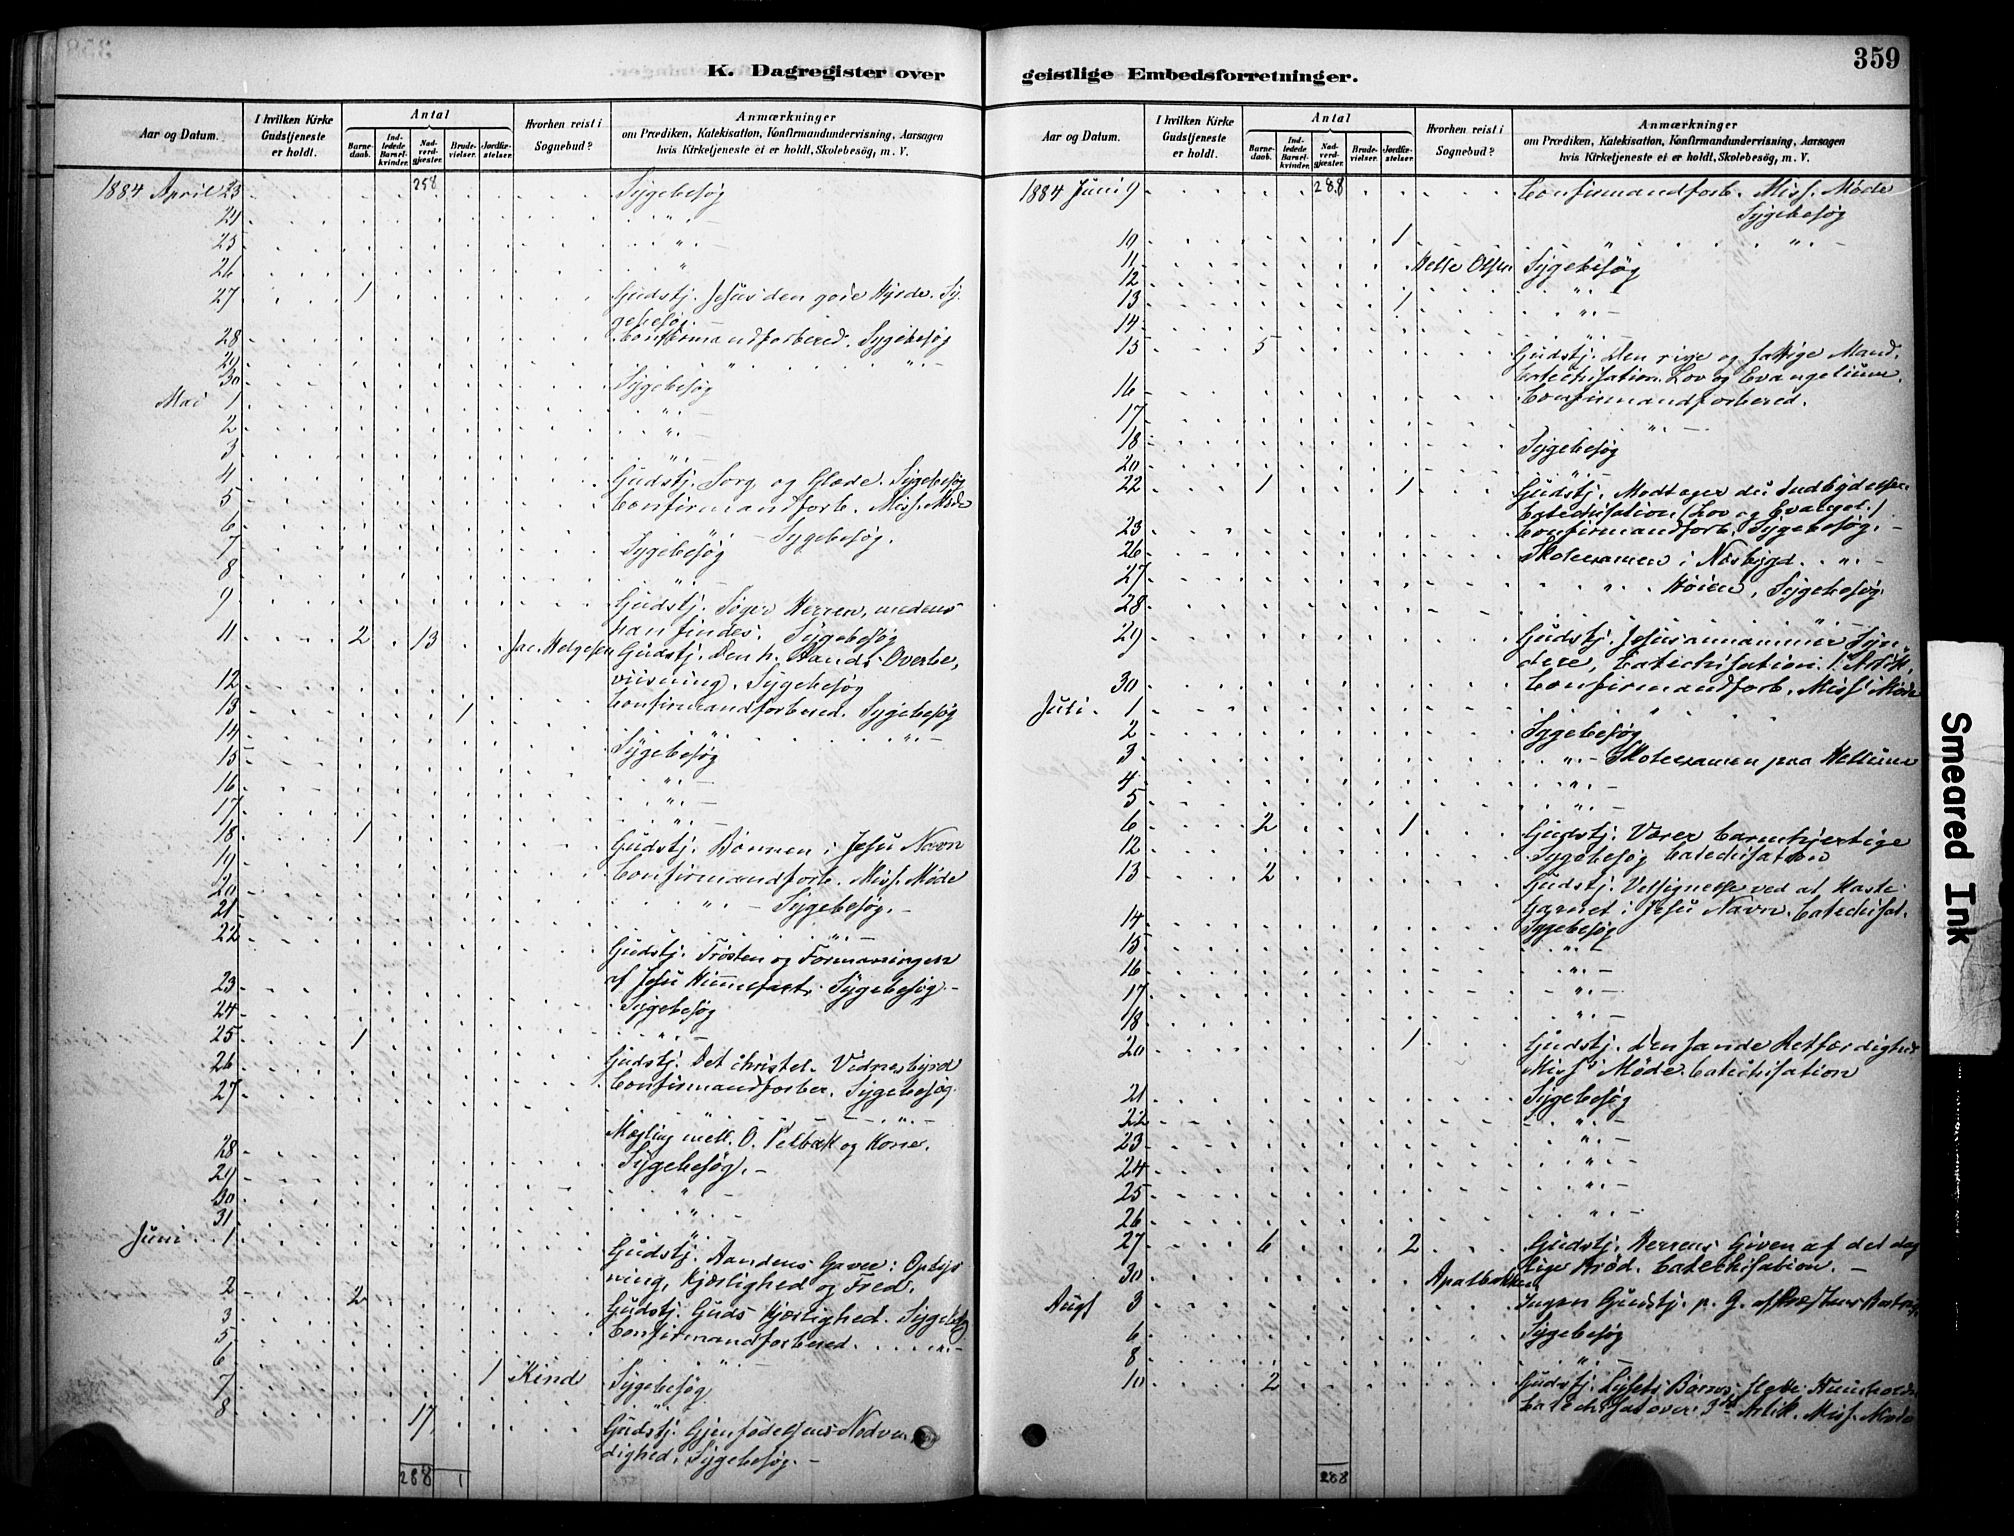 K. Dagregister over
geistlige Embedsforretninger.
359
Aar og Datum.
I hvilken Kirke Gudstjeneste er holdt.
Antal
Barnedaab.
Indledede Barselkvinder.
Nadverdgjester.
Brudevielser.
Jordfæstelser.
Hvorhen reist i Sognebud?
Anmærkninger
om Prædiken, Katekisation, Konfirmandundervisning, Aarsagen
hvis Kirketjeneste ei er holdt, Skolebesøg, m. V.
1884 April 23 258 Sygebesøg
24 " –
25 " –
26 "
27 1 Gudstj. Jesus den gode Hyrde. Sy
gebesøg. –
28 Confirmandforbered. Sygebesøg
29 " " –
30 Sygebesøg
Mai 1 " –
2 " –
3 " –
4 Gudstj. Sorg og Glæde. Sygebesøg
5 Confirmandforb. Miss. Møde
6 " – Sygebesøg.
7 Sygebesøg
8 "
9 Gudstj. Søger Herren, medens
han findes. Sygebesøg
11 2 13 Jac. Helgesen Gudstj. Den h. Aands Overbe,
viisning. Sygebesøg
12 Confirmandforbered. Sygebesøg
13 1 " " –
14 Sygebesøg
15 " –
16 " –
17
18 1 Gudstj. Bønnen i Jesu Navn
19 Confirmandforb. Miss. Møde
20 " – Sygebesøg. –
21 " –
22 Gudstj. Trøsten og Formaningen
af Jesu Himmelfart. Sygebesøg –
23 Sygebesøg
24 " –
25 1 Gudstj. Det christel. Vidnesbyrd
26 Confirmandforber. Sygebesøg.
27 " –
Mægling mell. O. Velbæk og Kone.
28 Sygebesøg. –
29 " –
30 " –
31 "
Juni 1 Gudstj. Aandens Gaver: Oplys
ning, Kjærlighed og Fred.
2 2 Gudstj. Guds Kjærlighed. Sygebesøg
3 Confirmandforbered. " –
5 " –
6 1 Kind Sygebesøg
7 "
8 17 Gudstj. Gjenfødelsens Nødven
dighed. Sygebesøg. –
288 1
Aar og Datum.
I hvilken Kirke Gudstjeneste er holdt.
Antal
Barnedaab.
Indledede Barselkvinder.
Nadverdgjester.
Brudevielser.
Jordfæstelser.
Hvorhen reist i Sognebud?
Anmærkninger
om Prædiken, Katekisation, Konfirmandundervisning, Aarsagen
hvis Kirketjeneste ei er holdt, Skolebesøg, m. V.
1884 Juni 9 288 Confirmandforb. Miss. Møde
Sygebesøg
10 1 " " –
11 Helle Olsen Sygebesøg
12 " –
13 1 " –
14 "
15 5 Gudstj. Den rige og fattige Mand.
Catechisation. Lov og Evangelium.
16 Confirmandforbered.
17 " –
18 Sygebesøg
20 "
22 1 1 Gudstj. Modtager du Indbydelsen
Catechisation (Lov og Evalgel.)
23 Confirmandforb. Sygebesøg. –
26 Skoleexamen i Næsbygd. " –
27 " Høien, Sygebesøg.
28 " –
29 Gudstj. Jesus annammer Syn,
dere, Catechisation. 1. Artik.
30 Confirmandforb. Miss. Møde
Juli 1 "
2 Sygebesøg
3 " – Skoleexamen paa Hellum
4 " –
5 " –
6 2 1 Gudstj. Værer barmhjertige
12 Sygebesøg Catechisation
13 2 Gudstj. Velsignelse ved at kaste
Garnet i Jesu Navn. Catechisat.
14 Sygebesøg
15 " –
16 " –
17 " –
18 " –
20 1 Gudstj. Den sande Retfærdighed
Miss. Møde. Catechisation
21 Sygebesøg
22 " –
23 " –
24 " –
25 " –
26 " –
27 6 2 Gudstj. Herrens Given af det dag
lige Brød. Catechisation. –
30 Apalbakken
Aug 3 Ingen Gudstj. p. G. af
6 Sygebesøg
8 " –
10 2 Gudstj. Lysets Børns
Catechisat over 3die Artik. Miss. Møde
288
Smeared Ink